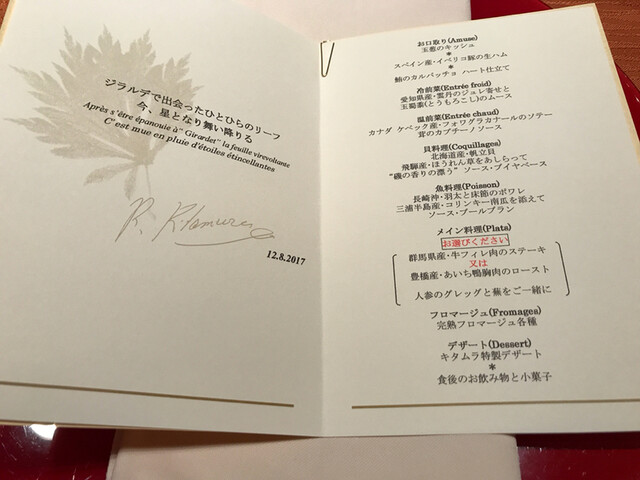 ジラルデで出会ったひとひらのリーフ
今、星となり舞い降りる
Après s'être épanouie à" Girardet" la feuille virevoltante
C'est mue en pluie d'étoiles étincellantes
12.8.2017
お口取り(Amuse)
玉葱のキッシュ
*
スペイン産・イベリコ豚の生ハム
*
鮪のカルパッチョ ハート仕立て
冷前菜(Entrée froid)
愛知県産・雲丹のジュレ寄せと
玉蜀黍(とうもろこし)のムース
温前菜(Entrée chaud)
カナダ ケベック産・フォワグラカナールのソテー
茸のカプチーノソース
貝料理(Coquillages)
北海道産・帆立貝
飛騨産・ほうれん草をあしらって
"磯の香りの漂う" ソース・ブイヤベース
魚料理(Poisson)
長崎沖・羽太と床節のポワレ
三浦半島産・コリンキー南瓜を添えて
ソース・ブールブラン
メイン料理(Plats)
お選びください
群馬県産・牛フィレ肉のステーキ
又は
豊橋産・あいち鴨胸肉のロースト
人参のグレッグと蕪をご一緒に
フロマージュ(Fromages)
完熟フロマージュ各種
デザート(Dessert)
キタムラ特製デザート
*
食後のお飲み物と小菓子